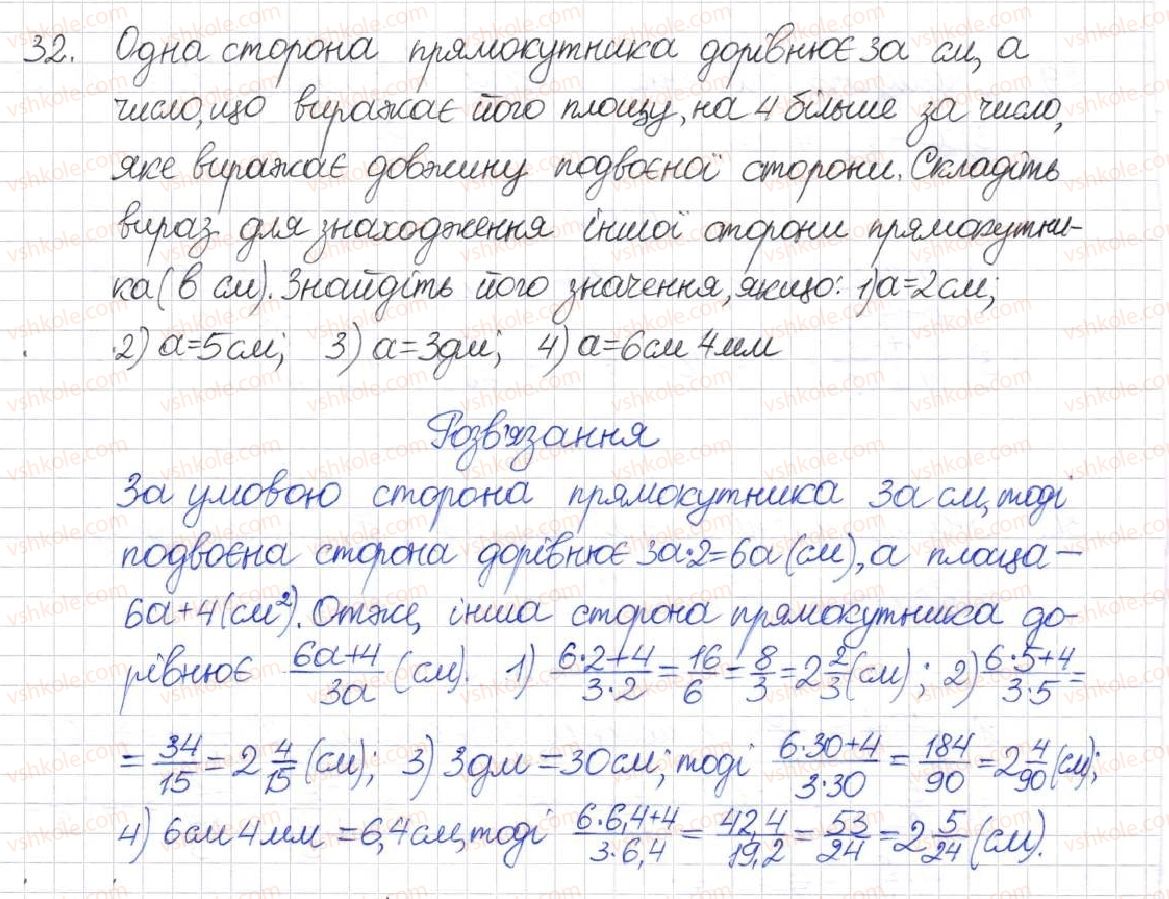 32. Одна сторона прямокутника дорівнює 3a см, а
число, що виражає його площу, на 4 більше за число,
яке виражає довжину подвоєної сторони. Складіть
вираз для знаходження іншої сторони прямокутни-
ка (в см). Знайдіть його значення, якщо: 1) a=2см;
2) a=5см; 3) a=3дм; 4) a=6см 4мм
Розв'язання
За умовою сторона прямокутника 3a см, тоді
подвоєна сторона дорівнює 3a·2=6a (см), а площа —
6a+4 (см²). Отже, інша сторона прямокутника до-
рівнює (6a+4)/(3a) (см). 1) (6·2+4)/(3·2) = 16/6 = 8/3 = 2 2/3 (см); 2) (6·5+4)/(3·5) =
= 34/15 = 2 4/15 (см); 3) 3дм = 30см, тоді (6·30+4)/(3·30) = 184/90 = 2 4/90 (см);
4) 6см 4мм = 6,4см, тоді (6·6,4+4)/(3·6,4) = 42,4/19,2 = 53/24 = 2 5/24 (см).
vshkole.com